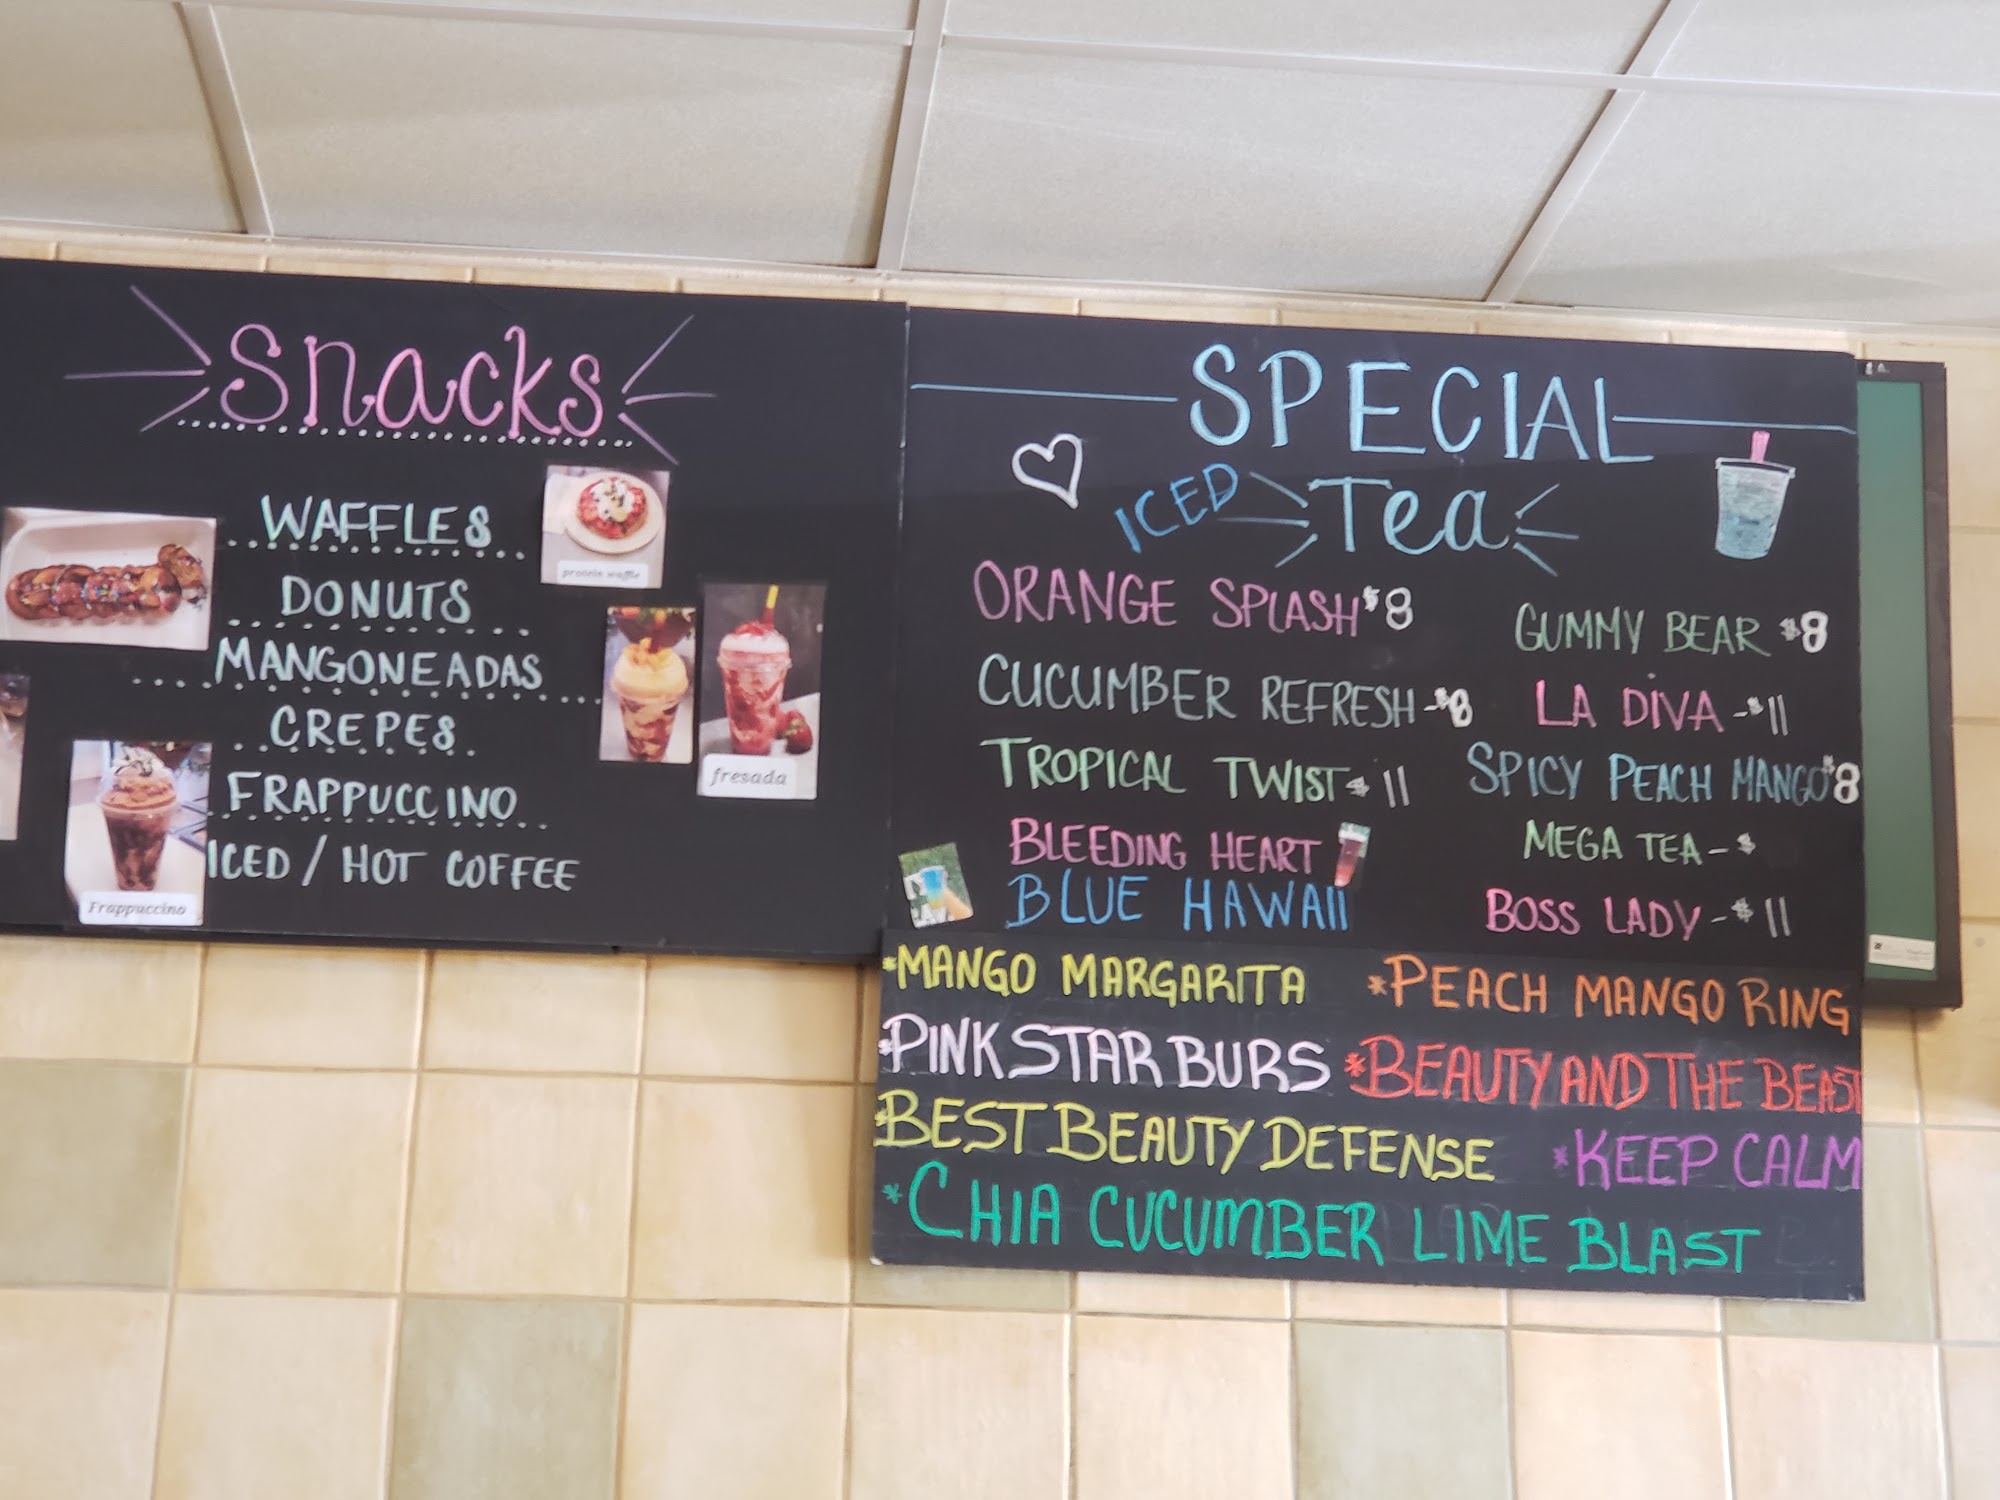 Snacks
WAFFLES
protein waffle
DONUTS
MANGONEADAS
fresada
CREPES
FRAPPUCCINO
ICED / HOT COFFEE
Frappuccino
SPECIAL
ICED Tea
ORANGE SPLASH $8
GUMMY BEAR $8
CUCUMBER REFRESH -$8
LA DIVA -$11
TROPICAL TWIST $11
SPICY PEACH MANGO $8
BLEEDING HEART
MEGA TEA - $
BLUE HAWAII
BOSS LADY - $11
*MANGO MARGARITA
*PEACH MANGO RING
*PINK STAR BURS
*BEAUTY AND THE BEAST
*BEST BEAUTY DEFENSE
*KEEP CALM
*CHIA CUCUMBER LIME BLAST